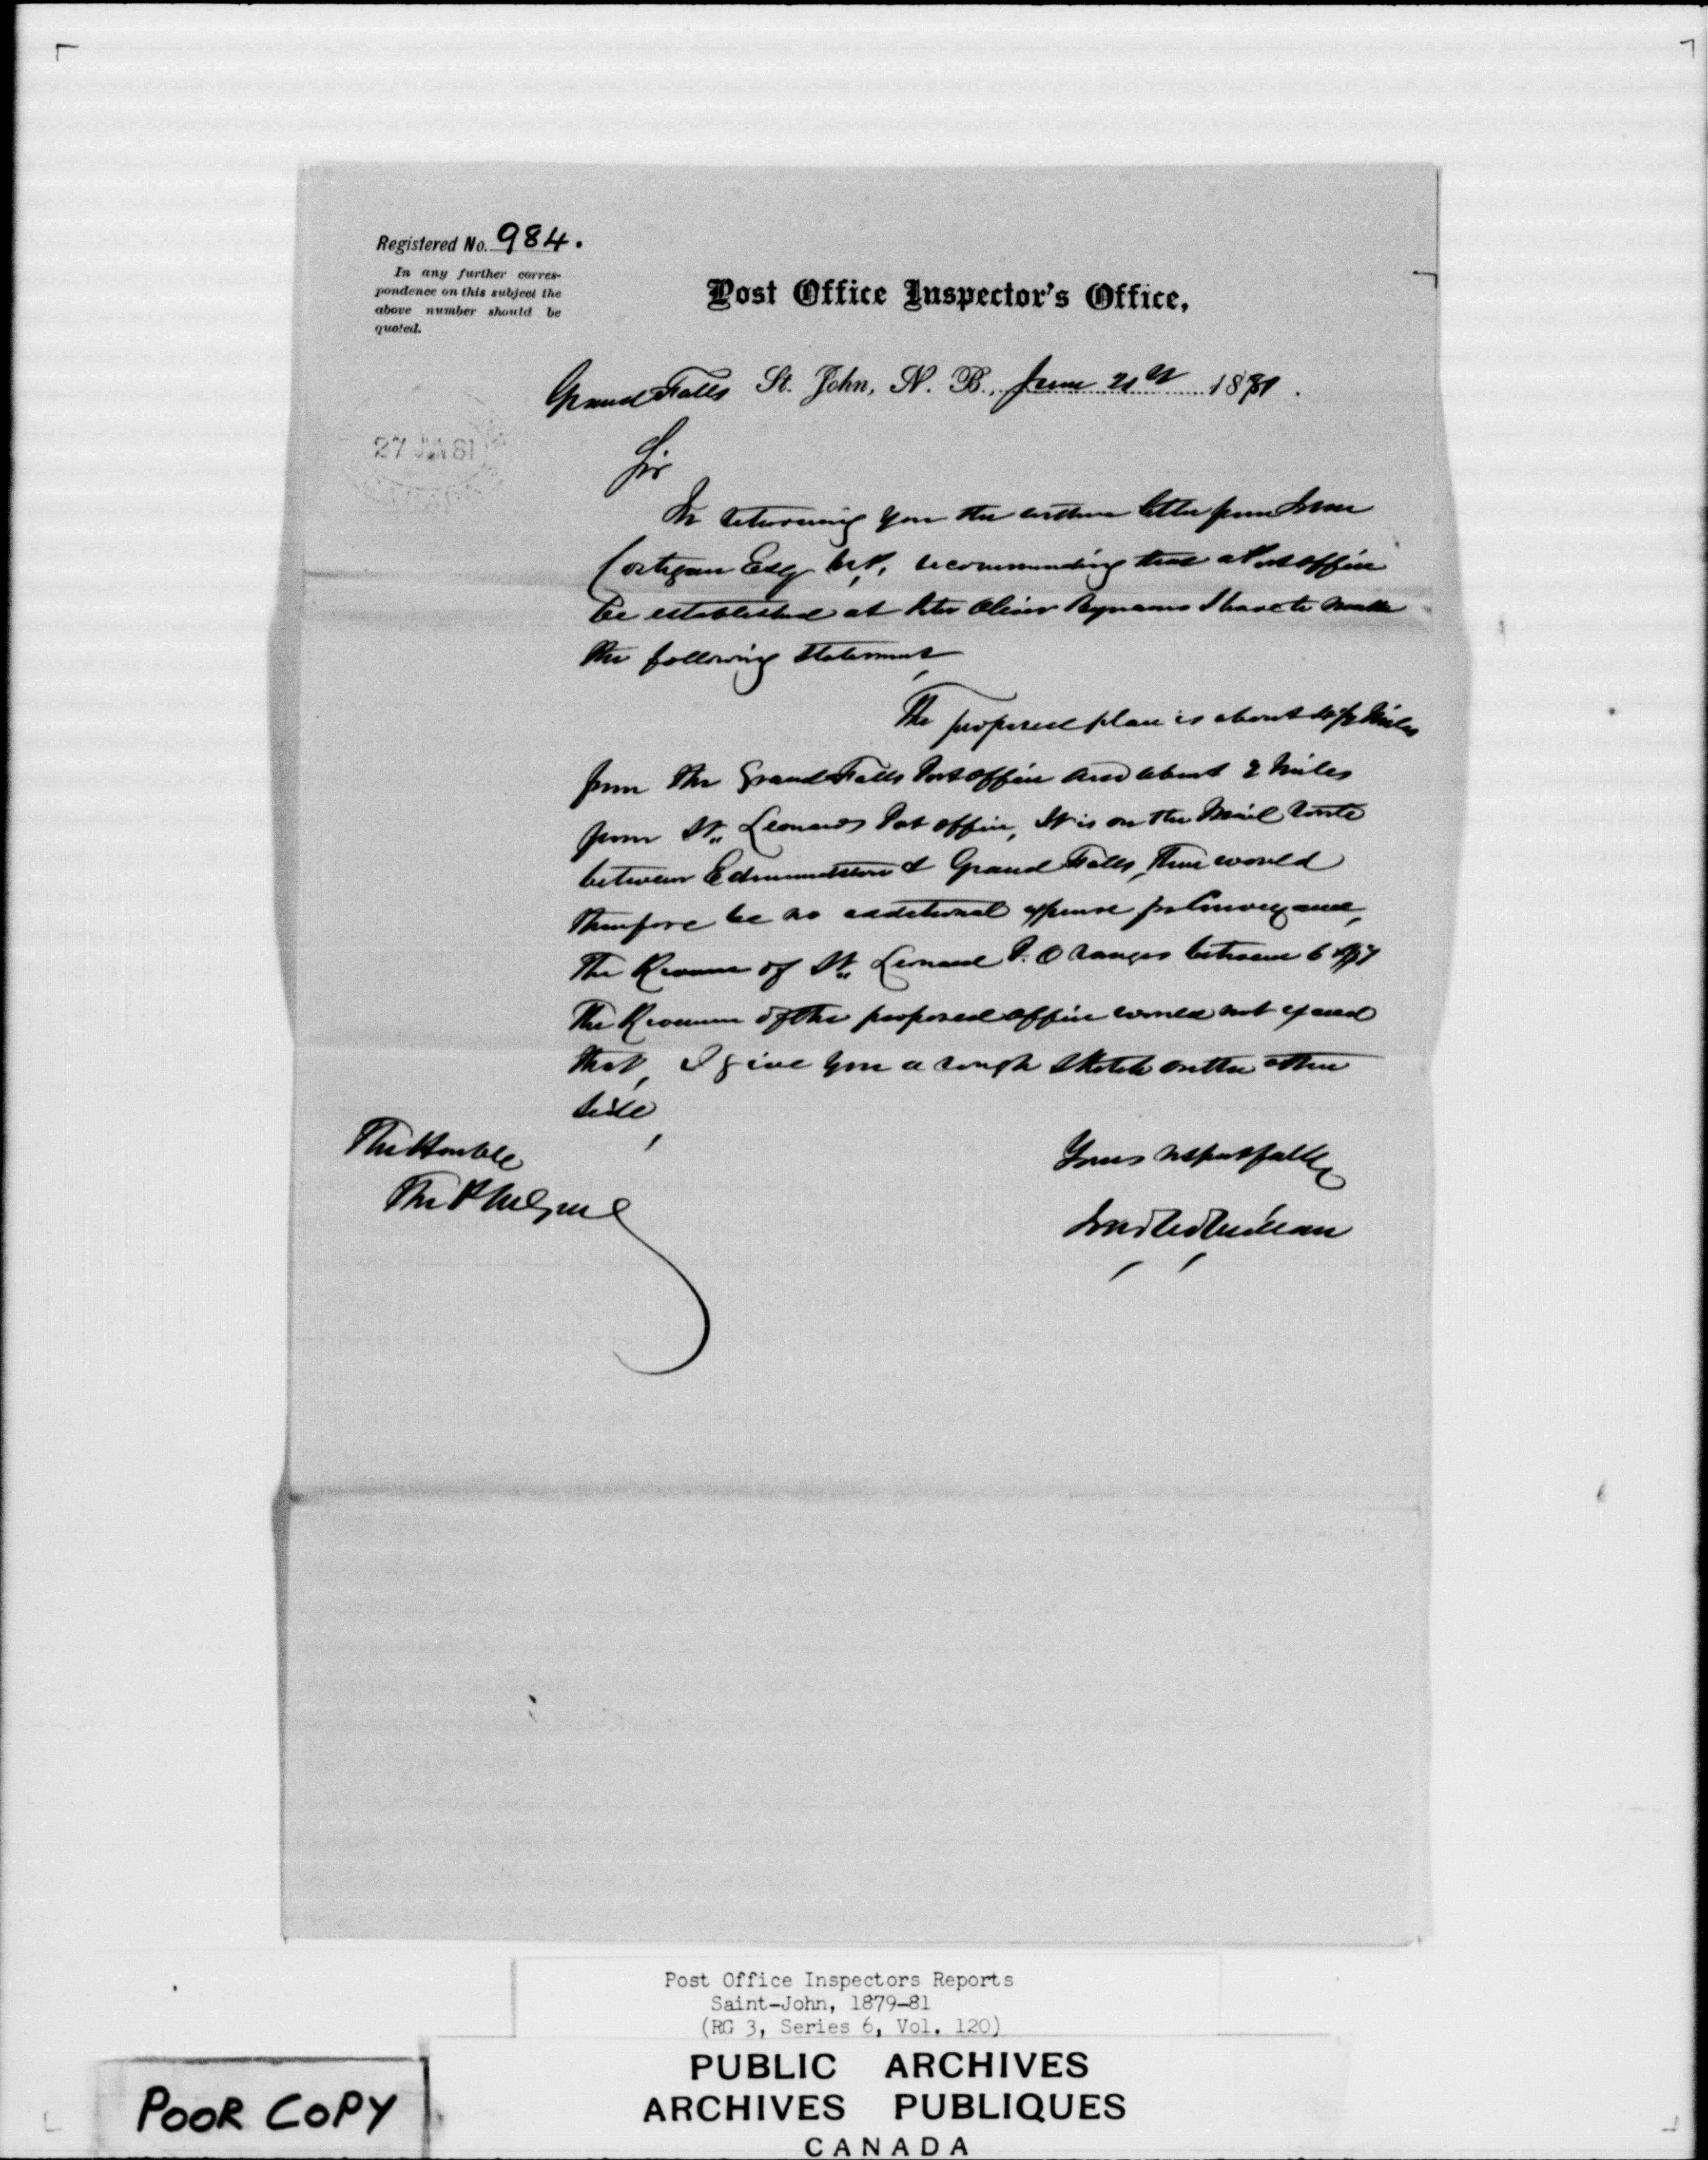 Registered No. 984.
In any further corres-
pondence on this subject the
above number should be
quoted.
Post Office Inspector's Office,
Grand Falls St. John, N. B., June 21st 1881.
27 JUN 81
Sir
In returning you the within letter from
Costigan Esq M.P, recommending that a Post office
be established at Oliver I have to make
the following statement,
The proposed place is about Miles
from the Grand Falls Post office and about 2 Miles
from St. Leonards Post office, It is on the Mail route
between Edmundston & Grand Falls, There would
therefore be no additional expense for Conveyance,
The Revenue of St. Leonard P.O ranges between 6
The Revenue of the proposed office would not exceed
that, I give you a rough sketch on the other
side,
The Honble
The P M General
Yours respectfully
Post Office Inspectors Reports
Saint-John, 1879-81
(RG 3, Series 6, Vol. 120)
PUBLIC ARCHIVES
ARCHIVES PUBLIQUES
CANADA
POOR COPY